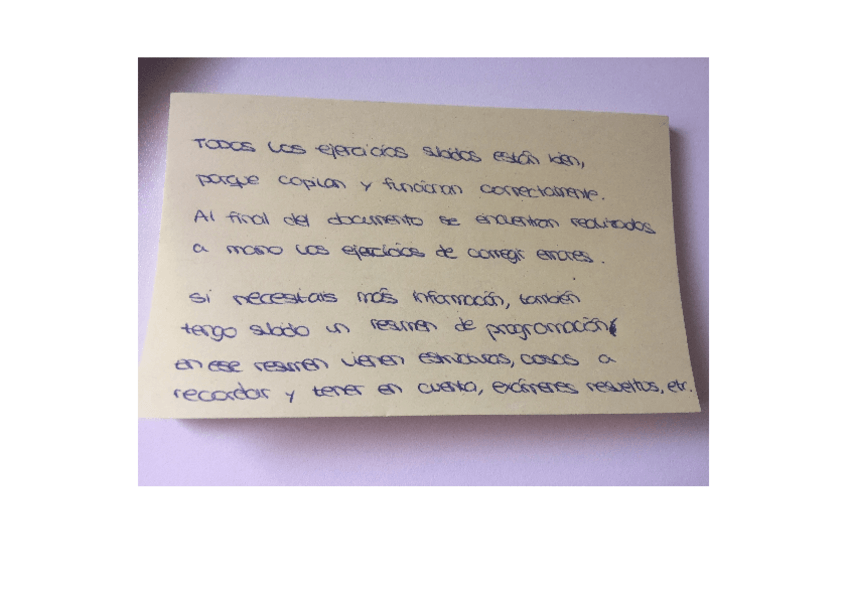 TODOS los ejercicios subidos están bien,
porque copilan y funcionan correctamente.
Al final del documento se encuentran realizados
a mano los ejercicios de corregir errores.
Si necesitais más información, también
tengo subido un resumen de programación,
en ese resumen vienen estructuras, cosas a
recordar y tener en cuenta, exámenes resueltos, etc.